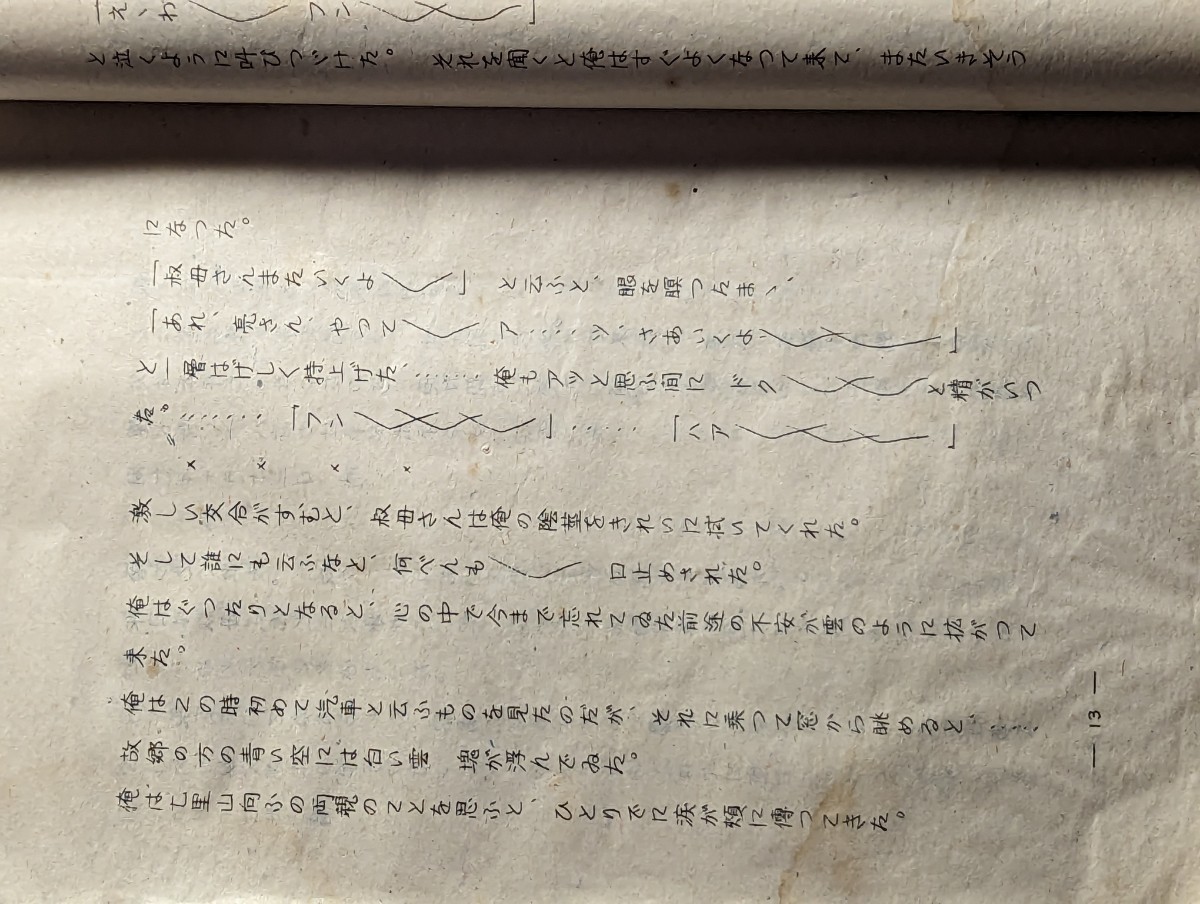 「え、わ〳〵フン〳〵〳〵」
と泣くように叫びつゞけた。 それを聞くと俺はすぐよくなつて来て、またいきそう
になつた。
「叔母さんまたいくよ〳〵」と云ふと、眼を瞑つたまゝ、
「あれ、亮さん、やつて〳〵ア……ッ、さあいくよ〳〵〳〵」
と一層はげしく持上げた、……俺もアッと思ふ間に ドク〳〵〳〵と精がいつ
た。……「フン〳〵〳〵〳〵」……「ハア〳〵〳〵〳〵」
× × × ×
激しい交合がすむと、叔母さんは俺の陰茎をきれいに拭いてくれた。
そして誰にも云ふなと、何べんも〳〵 口止めされた。
俺はぐつたりとなると、心の中で今まで忘れてゐた前途の不安が雲のように拡がつて
来た。
俺はこの時初めて汽車と云ふものを見たのだが、それに乗つて窓から眺めると、……
故郷の方の青い空には白い雲 塊が浮んでゐた。
俺は七里山向ふの両親のことを思ふと、ひとりでに涙が頬に傳つてきた。
— 13 —